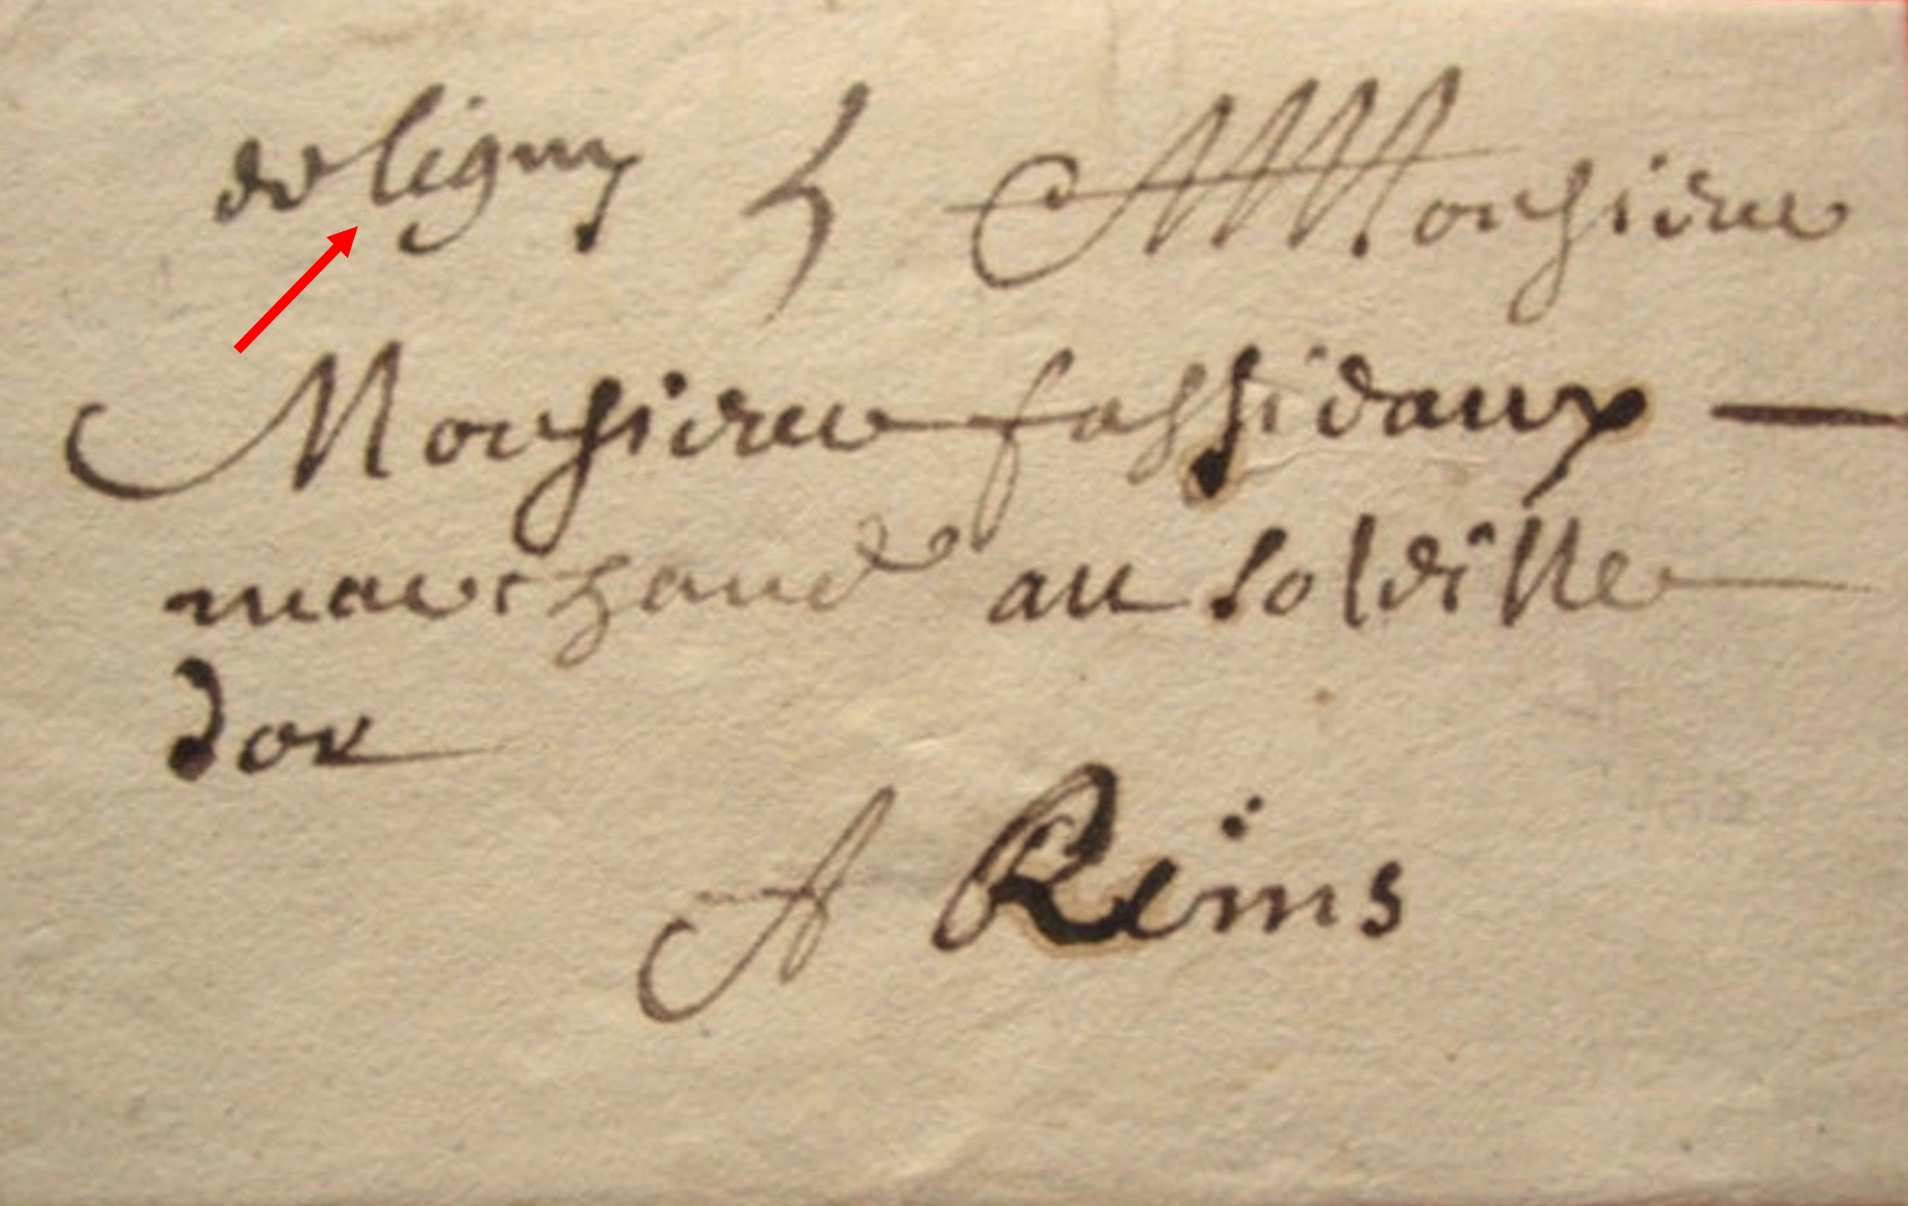 de ligny 5 Monsieur
Monsieur fassidaux
marchand au soldille
dor
A Reims